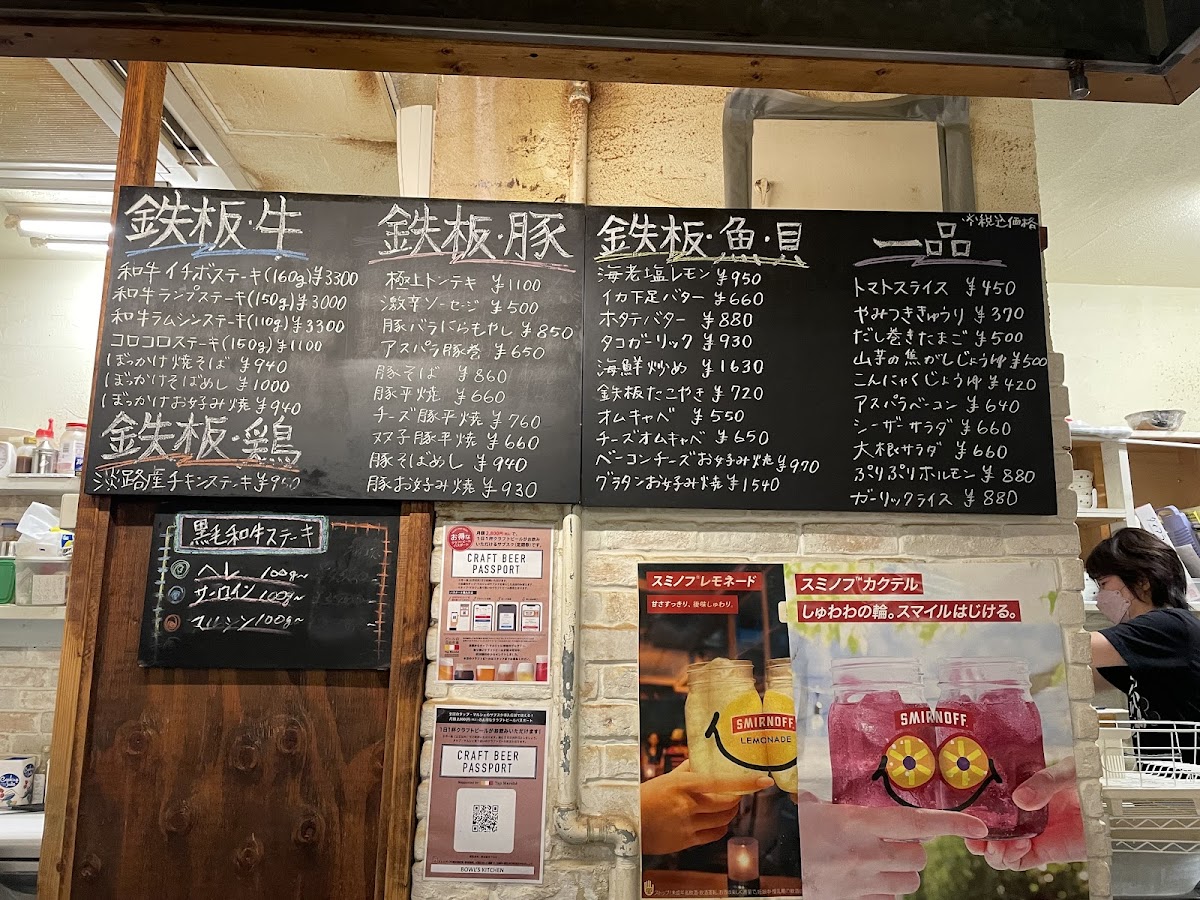 鉄板・牛
和牛イチボステーキ(160g)¥3300
和牛ランプステーキ(150g)¥3000
和牛ラムシンステーキ(110g)¥3300
コロコロステーキ(150g)¥1100
ぼっかけ焼そば ¥940
ぼっかけそばめし ¥1000
ぼっかけお好み焼 ¥940
鉄板・鶏
淡路産チキンステーキ¥950
鉄板・豚
極上トンテキ ¥1100
激辛ソーセージ ¥500
豚バラにらもやし ¥850
アスパラ豚巻 ¥650
豚そば ¥860
豚平焼 ¥660
チーズ豚平焼 ¥760
双子豚平焼 ¥660
豚そばめし ¥940
豚お好み焼 ¥930
鉄板・魚・貝
海老塩レモン ¥950
イカ下足バター ¥660
ホタテバター ¥880
タコガーリック ¥930
海鮮炒め ¥1630
鉄板たこやき ¥720
オムキャベ ¥550
チーズオムキャベ ¥650
ベーコンチーズお好み焼 ¥970
グラタンお好み焼 ¥1540
※税込価格
一品
トマトスライス ¥450
やみつききゅうり ¥370
だし巻きたまご ¥500
山芋の焦がしじょうゆ ¥500
こんにゃくじょうゆ ¥420
アスパラベーコン ¥640
シーザーサラダ ¥660
大根サラダ ¥660
ぷりぷりホルモン ¥880
ガーリックライス ¥880
黒毛和牛ステーキ
ヘレ 100g~
サーロイン 100g~
マルシン 100g~
お得な
月額2,500円(税込)で、
1日1杯クラフトビールが
いただけるサブスク(定期券)です。
CRAFT BEER
PASSPORT
1日1杯クラフトビールがお飲みいただけます!
CRAFT BEER
PASSPORT
Tap Marché
BOWL'S KITCHEN
スミノフ®レモネード
甘さすっきり、後味しゅわり。
SMIRNOFF
LEMONADE
スミノフ™カクテル
しゅわわの輪。スマイルはじける。
SMIRNOFF